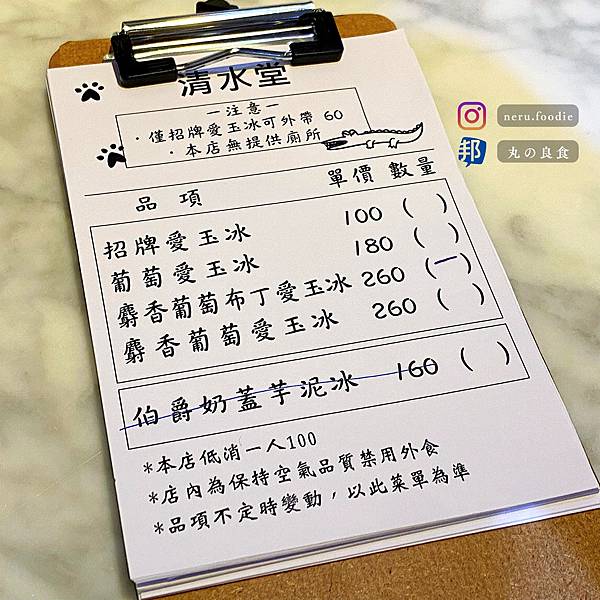 清水堂
—注意—
·僅招牌愛玉冰可外帶 60
·本店無提供廁所
neru.foodie
邦 丸の良食
品項 單價 數量
招牌愛玉冰 100 ( )
葡萄愛玉冰 180 ( )
麝香葡萄布丁愛玉冰 260 (一)
麝香葡萄愛玉冰 260 ( )
伯爵奶蓋芋泥冰 160 ( )
*本店低消一人100
*店內為保持空氣品質禁用外食
*品項不定時變動，以此菜單為準